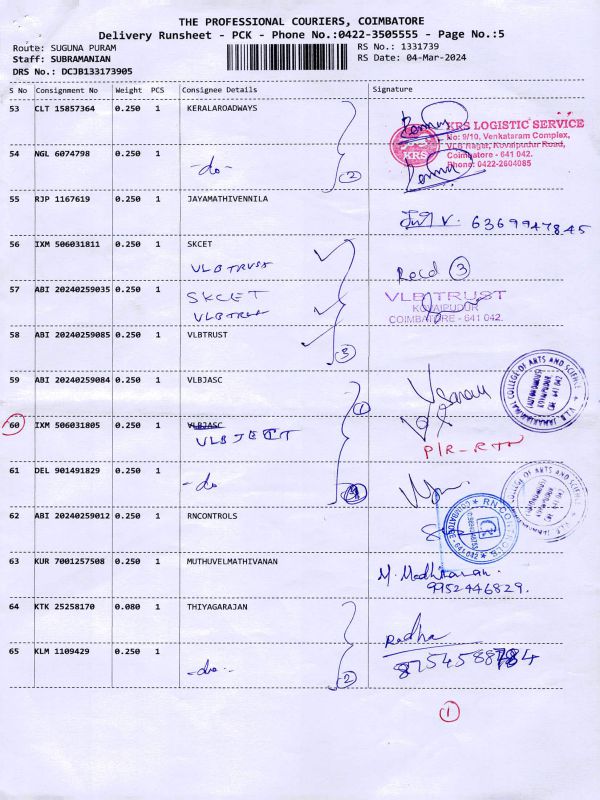 THE PROFESSIONAL COURIERS, COIMBATORE
Delivery Runsheet - PCK - Phone No.:0422-3505555 - Page No.:5
Route: SUGUNA PURAM
RS No.: 1331739
Staff: SUBRAMANIAN
RS Date: 04-Mar-2024
DRS No.: DCJB133173905
S No Consignment No Weight PCS Consignee Details Signature
53 CLT 15857364 0.250 1 KERALAROADWAYS
KRS LOGISTIC SERVICE
No: 9/10, Venkataram Complex,
VLB Nagar, Kovaipudur Road,
Coimbatore - 641 042.
Phone: 0422-2604085
KRS
54 NGL 6074798 0.250 1
-do-
2
55 RJP 1167619 0.250 1 JAYAMATHIVENNILA
6369947845
56 IXM 506031811 0.250 1 SKCET
VLB TRUST
Recd 3
57 ABI 20240259035 0.250 1
SKCET
VLB TRUST
VLB TRUST
KOVAIPUDUR
COIMBATORE - 641 042.
58 ABI 20240259085 0.250 1 VLBTRUST
3
59 ABI 20240259084 0.250 1 VLBJASC
1
60 IXM 506031805 0.250 1 VLBJASC
VLBJECT
P/R-RTN
61 DEL 901491829 0.250 1
-do
62 ABI 20240259012 0.250 1 RNCONTROLS
RN CONTROLS
COIMBATORE - 641 042
63 KUR 7001257508 0.250 1 MUTHUVELMATHIVANAN
M. Madhivanan.
9952446829.
64 KTK 25258170 0.080 1 THIYAGARAJAN
Radha
65 KLM 1109429 0.250 1
-do-
2
1